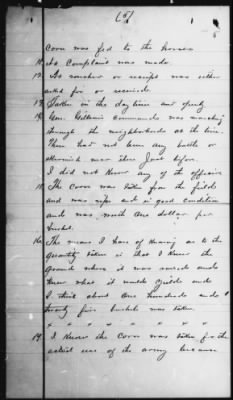 (5)
5
Corn was fed to the horses
11. No Complaint was made.
12. No voucher or receipt was either
asked for or received.
13. Taken in the day time and openly
14. Gen. Gillem's commands was marching
through the neighborhoods at the time.
There had not been any battle or
skirmish near there just before.
I did not know any of the officers
15. The Corn was taken from the fields
and was ripe and in good condition
and was worth one dollar per
bushel.
16. The means I have of knowing as to the
quantity taken is that I knew the
ground where it was raised and
knew what it would yield and
I think about one hundred and
twenty five bushels was taken
x x x x x x x x
17. I know the Corn was taken for the
actual use of the army because